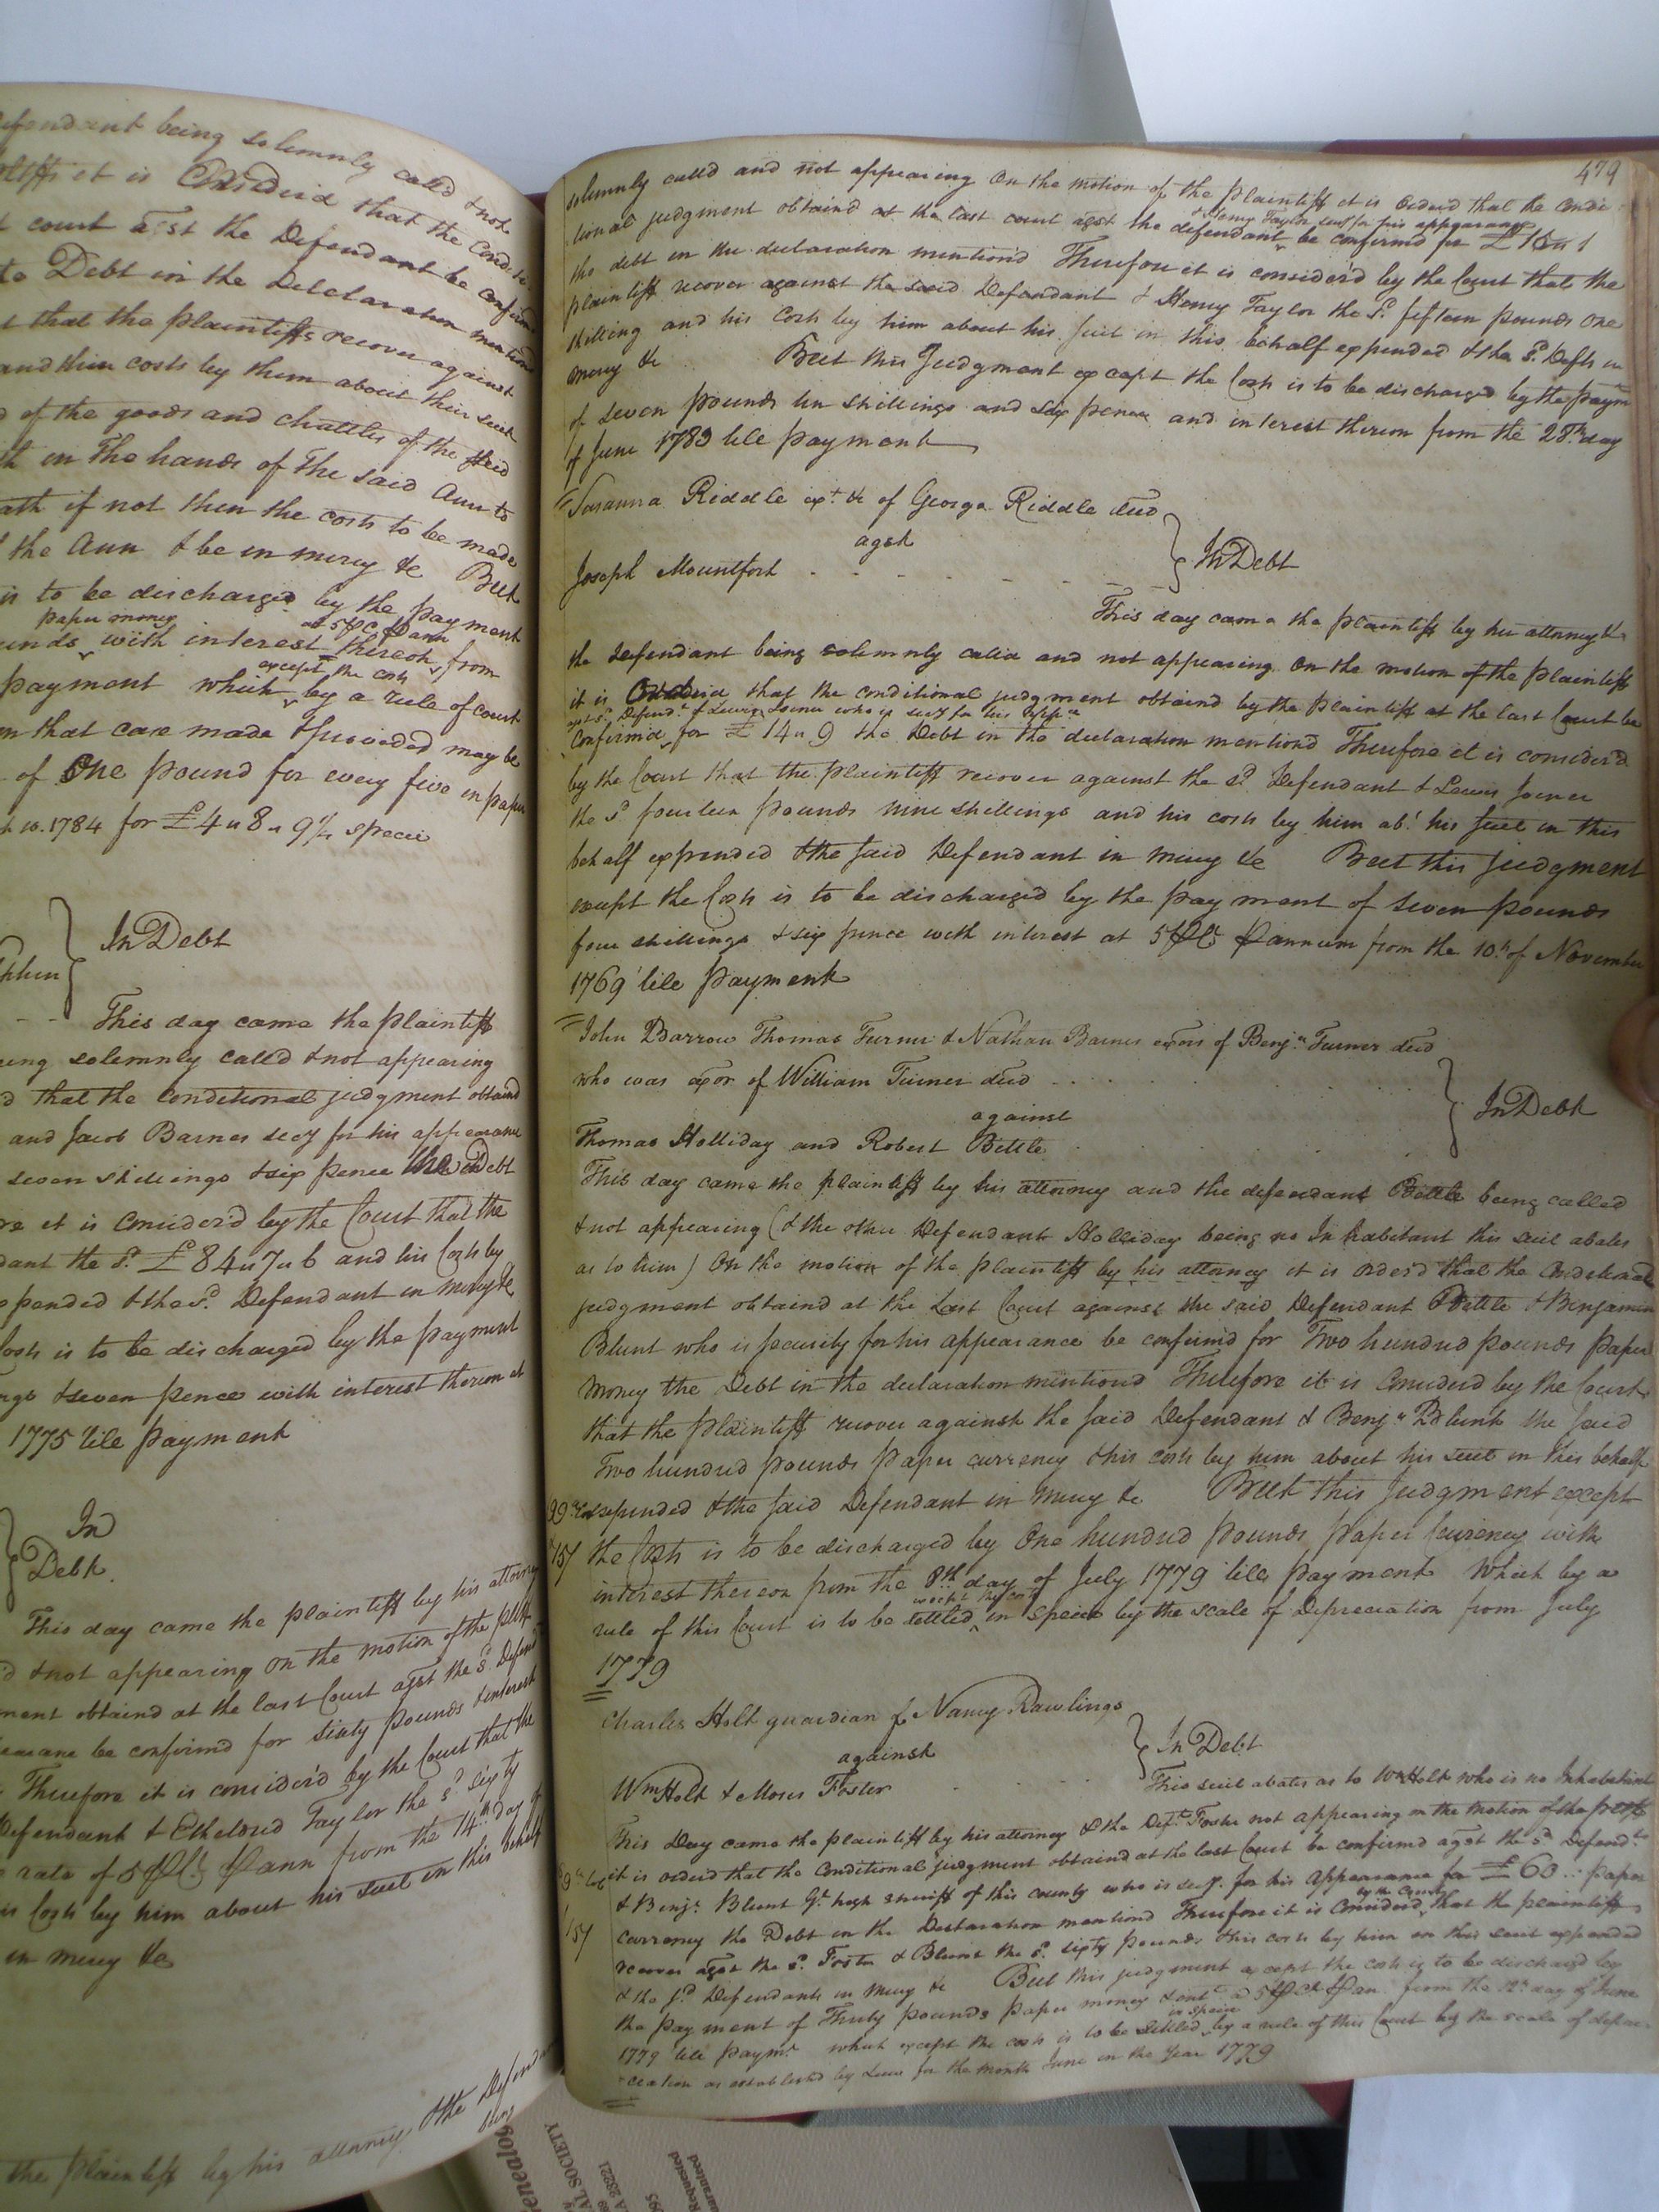 efendant being solemnly calld & not
tiffs it is Considerd that the Conditi
t court agst the Defendant be confirmd
to Debt in the Declaration mentiond
t that the plaintiffs recover against
and thier costs by them about their suit
d of the goods and chattles of the said
th in The hands of the said Ann to
ath if not then the costs to be made
the Ann & be in mercy &c But
is to be discharged by the payment
paper money at 5 P Ct P ann
unds with interest thereon from
except the costs
payment which by a rule of court
in that case made & provided may be
of One pound for every five in paper
10. 1784 for £4 " 8 " 9½ specie
In Debt
This day came the plaintiff
eing solemnly calld & not appearing
d that the Conditional judgment obtaind
and Jacob Barnes secy for his appearance
seven shillings & six pence the Debt
re it is Considerd by the Court that the
dant the sd. £84 " 7 " 6 and his Costs by
xpended & the sd. Defendant in mercy &c
Costs is to be discharged by the payment
ngs & seven pence with interest thereon at
1775 till payment
In
Debt.
This day came the plaintiff by his attorney
d & not appearing on the motion of the pltff
ment obtaind at the last Court agst the sd. Defend
earance be confirmd for sixty pounds & interest
Therefore it is considerd by the Court that the
Defendant & Etheldred Taylor the sd. sixty
rate of 5 P Ct. P ann from the 14th day of
is Costs by him about his suit in this behalf
in mercy &c
the plaintiff by his attorney & the Defendant
being
479
solemnly calld and not appearing On the motion of the plaintiff it is Orderd that the Condi
& Henry Taylor secy for his appearance
tional judgment obtaind at the last court agst the defendant be confirmd for £15 " 1
the debt in the declaration mention'd Therefore it is consider'd by the Court that the
plaintiff recover against the said Defendant & Henry Taylor the sd. fifteen pounds one
shilling and his Costs by him about his suit in this behalf expended & the sd. Defts in
mercy &c But this Judgment except the Costs is to be discharged by the paym
of seven pounds ten shillings and six pence and interest thereon from the 28th day
of June 1783 till payment
Susanna Riddle exx. &c of George Riddle decd
agst
Joseph Mountfort
In Debt
This day came the plaintiff by her attorney &
the defendant being solemnly calld and not appearing On the motion of the plaintiff
it is Orderd that the conditional judgment obtaind by the plaintiff at the last Court be
agst sd. Defendt. & Lewis Joiner who is secy for his appce
Confirmd for £14 " 9 the Debt in the declaration mentiond Therefore it is consider'd
by the Court that the plaintiff recover against the sd. Defendant & Lewis Joiner
the sd. fourteen pounds nine shillings and his costs by him abt. his suit in this
behalf expended & the said Defendant in mercy &c But this judgment
except the Costs is to be discharged by the payment of seven pounds
four shillings & six pence with interest at 5 P Ct P annum from the 10th of November
1769 till payment
John Barrow Thomas Turner & Nathan Barnes exors of Benjn. Turner decd
who was exor. of William Turner decd
against
Thomas Holliday and Robert Bittle
In Debt
This day came the plaintiff by his attorney and the defendant Bittle being called
& not appearing (& the other Defendant Holliday being no Inhabitant this suit abates
as to him) On the motion of the plaintiff by his attorney it is orderd that the Conditional
judgment obtaind at the Last Court against the said Defendant Bittle & Benjamin
Blunt who is security for his appearance be confirmd for Two hundred pounds paper
money the Debt in the declaration mentiond Therefore it is Considerd by the Court
that the plaintiff recover against the said Defendant & Benjn Blunt the said
Two hundred pounds paper currency & his costs by him about his suit in this behalf
expended & the said Defendant in mercy &c But this Judgment except
15/ the Costs is to be discharged by One hundred pounds paper Currency with
interest thereon from the 8th day of July 1779 till payment Which by a
except the costs
rule of this Court is to be settled in specie by the scale of Depreciation from July
1779
Charles Holt guardian of Nancy Rawlings
against
Wm Holt & Moses Foster
In Debt
This suit abates as to Wm Holt who is no Inhabitant
This Day came the plaintiff by his attorney & the Deft. Foster not appearing on the motion of the pltff
it is orderd that the Conditional judgment obtaind at the last Court be confirmd agst the sd Defendt.
& Benjn. Blunt Gt. high sheriff of this county who is secy. for his appearance for £60 .. : paper
by the Court
15/ currency the Debt in the Declaration mentiond Therefore it is Considerd that the plaintiff
recover agst the sd. Foster & Blunt the sd. sixty pounds & his costs by him in this suit expended
& the sd. Defendants in mercy &c But this judgment except the costs is to be discharged by
the payment of Thirty pounds paper money & int. a 5 P Ct P an. from the 12th day of June
in specie
1779 till paymt. which except the costs is to be settled by a rule of this Court by the scale of depre-
-ciation as established by Law for the month June in the year 1779
enealog
AL SOCIETY
A 23221
Requested
uaranteed